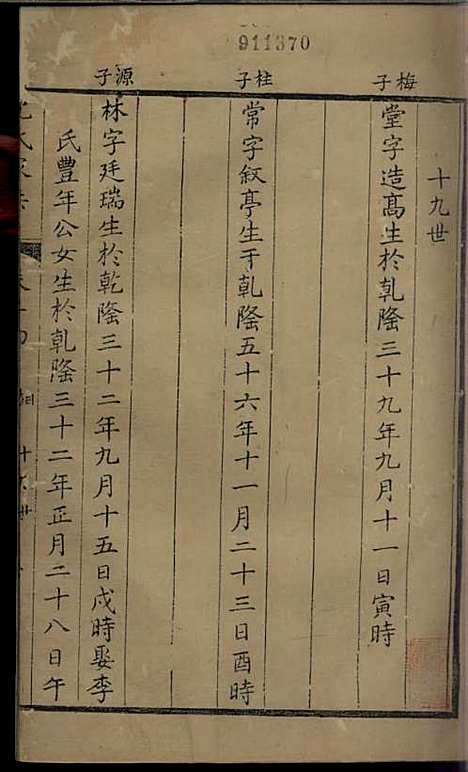 911370
十九世
梅子
堂字造高生於乹隆三十九年九月十一日寅時
柱子
常字叙亭生于乹隆五十六年十一月二十三日酉時
源子
林字廷瑞生於乾隆三十二年九月十五日戍時娶李
氏豐年公女生於乹隆三十二年正月二十八日午